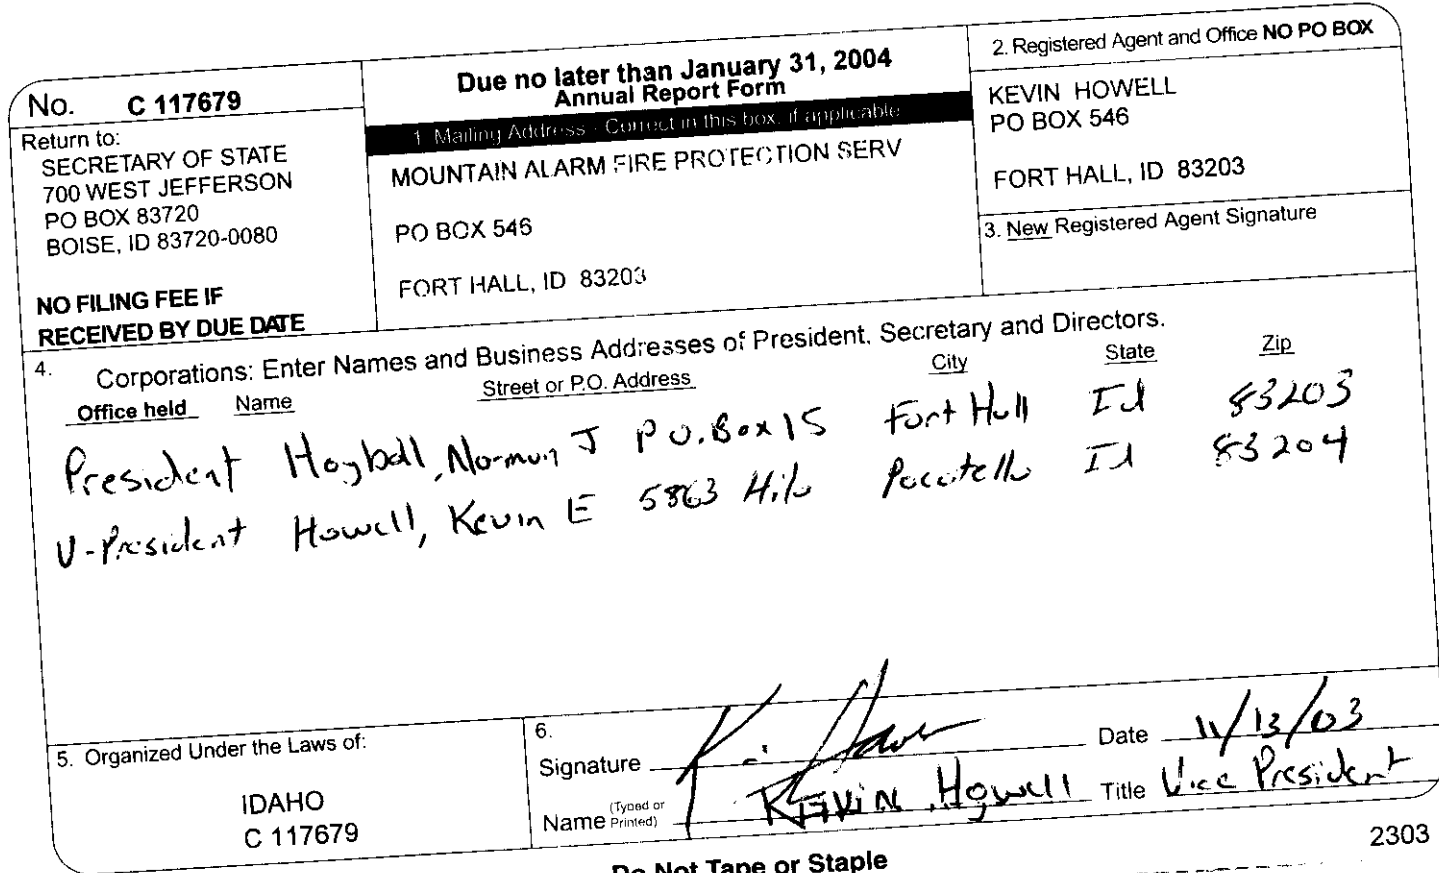 No. C 117679
Return to:
SECRETARY OF STATE
700 WEST JEFFERSON
PO BOX 83720
BOISE, ID 83720-0080
NO FILING FEE IF
RECEIVED BY DUE DATE
Due no later than January 31, 2004
Annual Report Form
1. Mailing Address - Correct in this box, if applicable
MOUNTAIN ALARM FIRE PROTECTION SERV
PO BOX 546
FORT HALL, ID 83203
2. Registered Agent and Office NO PO BOX
KEVIN HOWELL
PO BOX 546
FORT HALL, ID 83203
3. New Registered Agent Signature
4. Corporations: Enter Names and Business Addresses of President, Secretary and Directors.
Office held Name Street or P.O. Address City State Zip
President Hoyball, Norman J P.O. Box 15 Fort Hall Id 83203
V-President Howell, Kevin E 5863 Hilo Pocatello Id 83204
5. Organized Under the Laws of:
IDAHO
C 117679
6.
Signature Date 11/13/03
Name (Typed or Printed) KEVIN Howell Title Vice President
Do Not Tape or Staple
2303